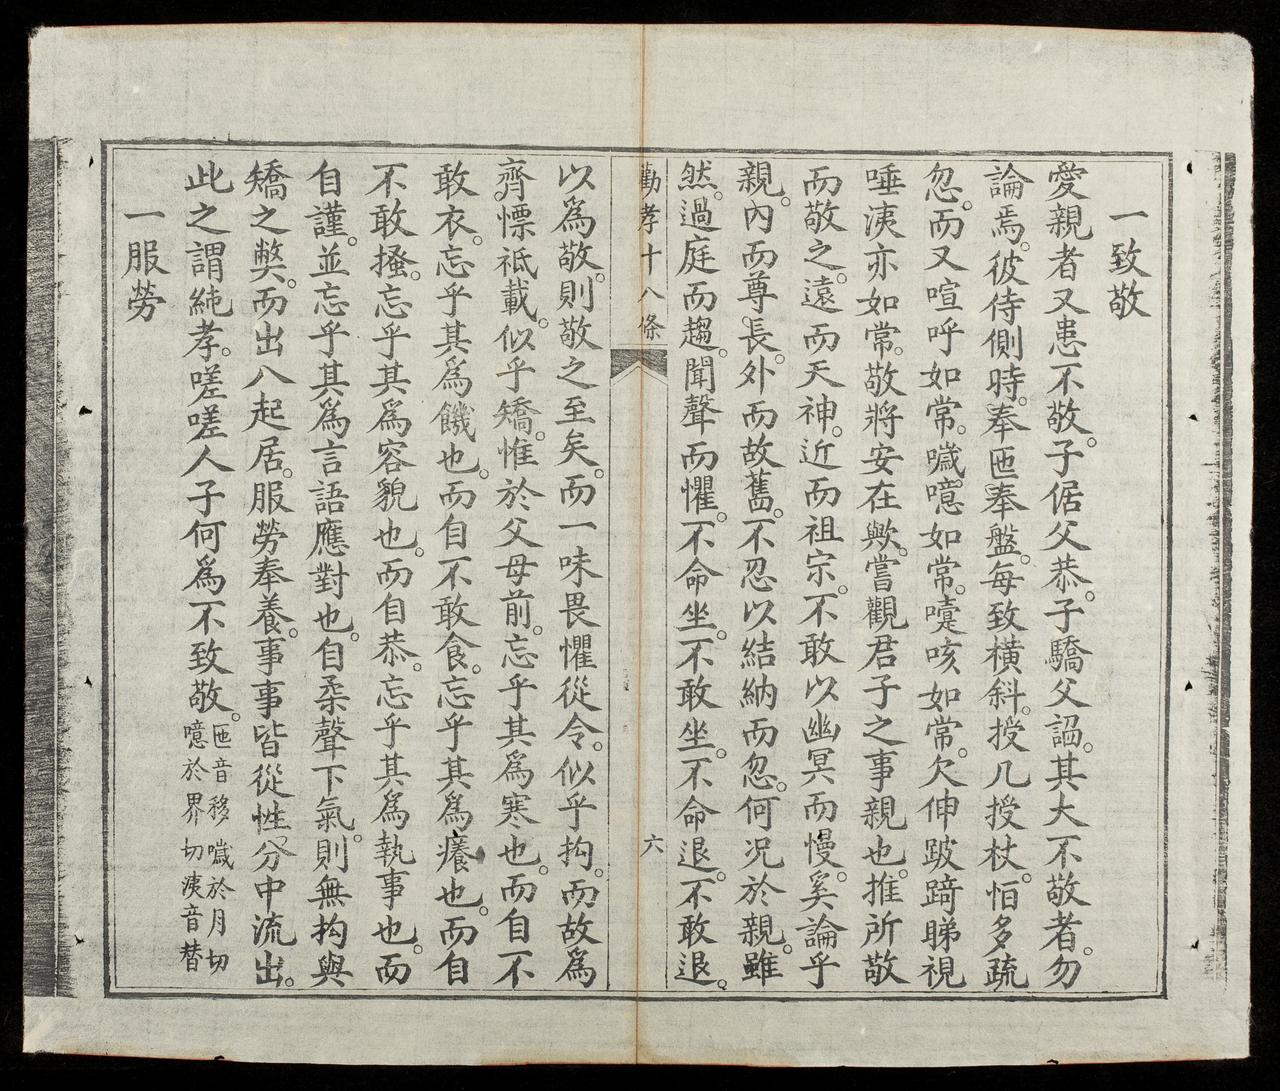 一致敬
愛親者又患不敬。子倨父恭。子驕父謟。其大不敬者。勿
論焉。彼侍側時。奉匜奉盤。每致橫斜。授几授杖。怕多疏
忽。而又喧呼如常。噦噫如常。嚏咳如常。欠伸跛踦睇視
唾洟亦如常。敬將安在歟。嘗觀君子之事親也。推所敬
而敬之。遠而天神。近而祖宗。不敢以幽冥而慢。奚論乎
親。內而尊長。外而故舊。不忍以結納而忽。何况於親。雖
然。過庭而趨。聞聲而懼。不命坐。不敢坐。不命退。不敢退。
勸孝十八條
六
以爲敬。則敬之至矣。而一味畏懼從令。似乎拘。而故爲
齊慄祗載。似乎矯。惟於父母前。忘乎其爲寒也。而自不
敢衣。忘乎其爲饑也。而自不敢食。忘乎其爲癢也。而自
不敢搔。忘乎其爲容貌也。而自恭。忘乎其爲執事也。而
自謹。並忘乎其爲言語應對也。自柔聲下氣。則無拘與
矯之獘。而出入起居。服勞奉養。事事皆從性分中流出。
此之謂純孝。嗟嗟人子何爲不致敬。匜音移 噦於月切
噫於界切 洟音替
一服勞